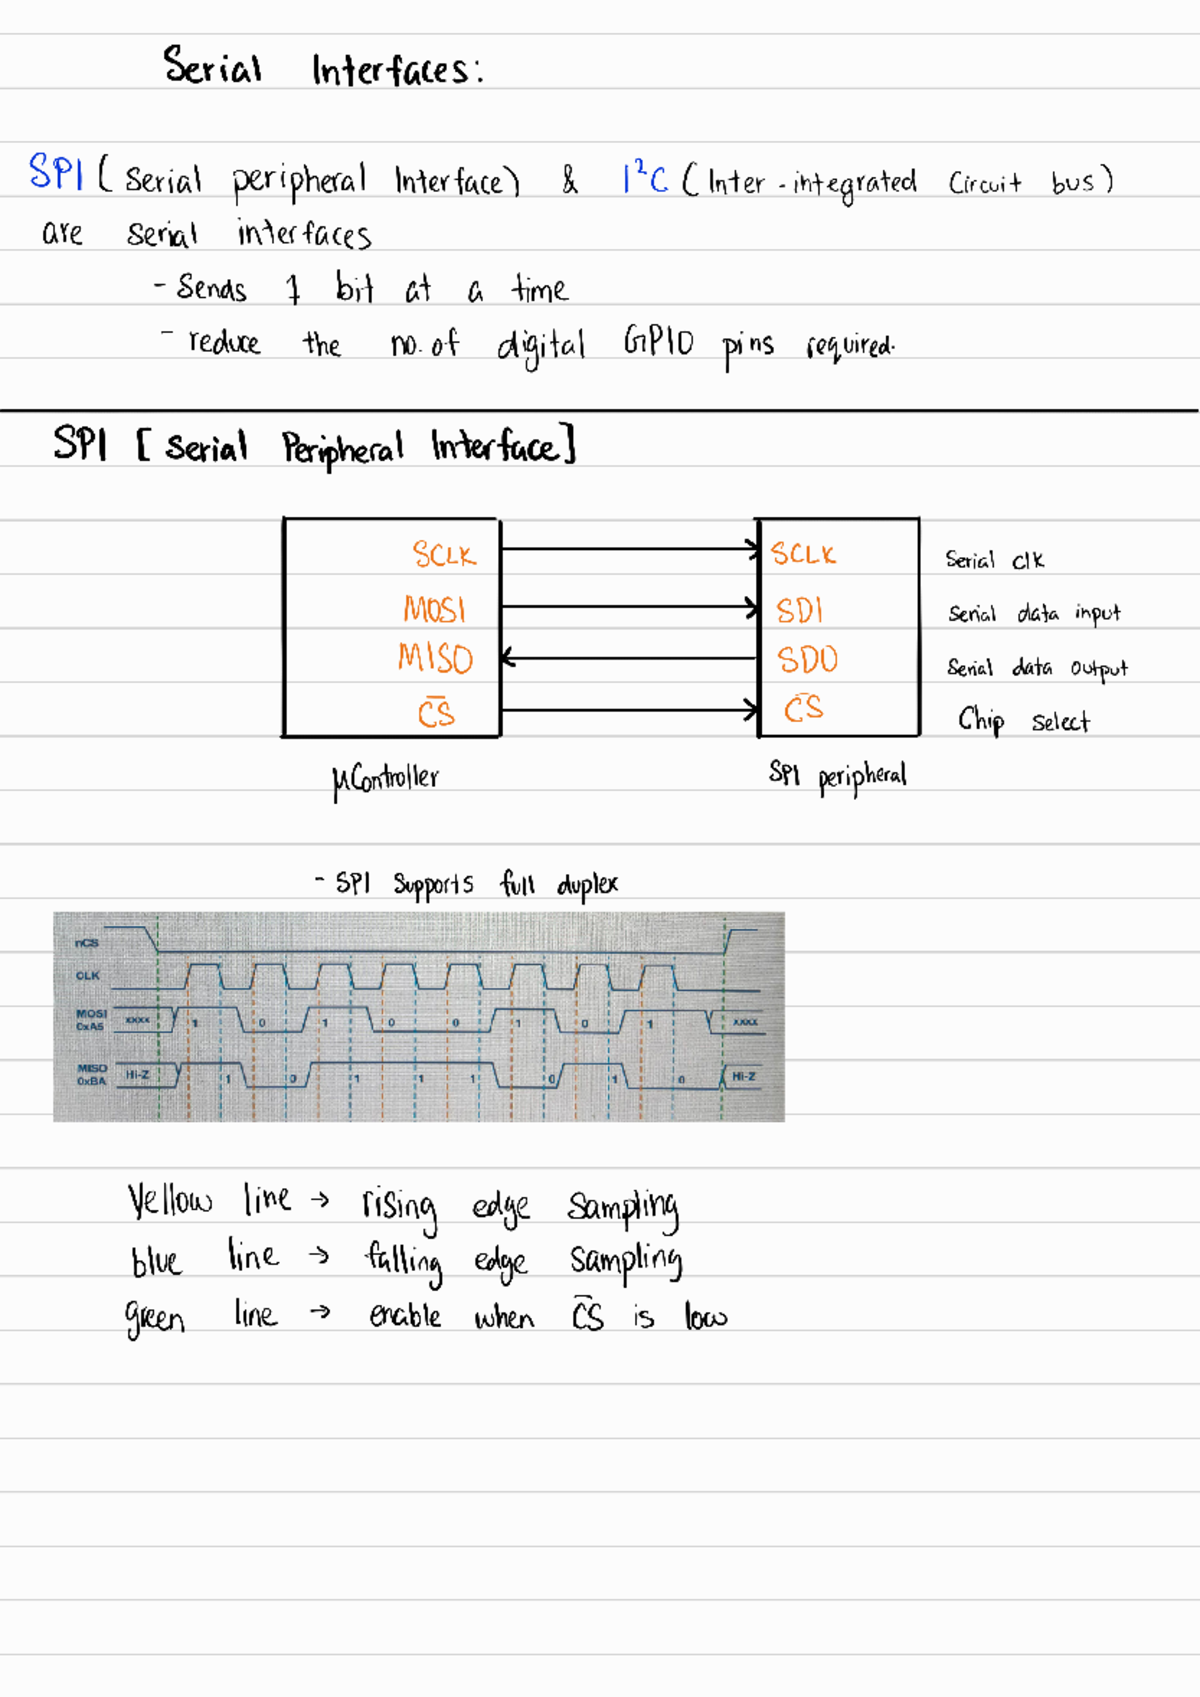 Serial Interfaces:
SPI ( Serial peripheral Interface) & I²C (Inter-integrated Circuit bus)
are serial interfaces
- Sends 1 bit at a time
- reduce the no. of digital GPIO pins required.
SPI [ Serial Peripheral Interface]
SCLK SCLK Serial clk
MOSI SDI Serial data input
MISO SDO Serial data output
C̅S̅ C̅S̅ Chip select
μController SPI peripheral
- SPI Supports full duplex
nCS
CLK
MOSI
0xA5 XXXX 1 0 1 0 0 1 0 1 XXXX
MISO
0xBA Hi-Z 1 0 1 1 1 0 1 0 Hi-Z
Yellow line → rising edge sampling
blue line → falling edge sampling
green line → enable when C̅S̅ is low